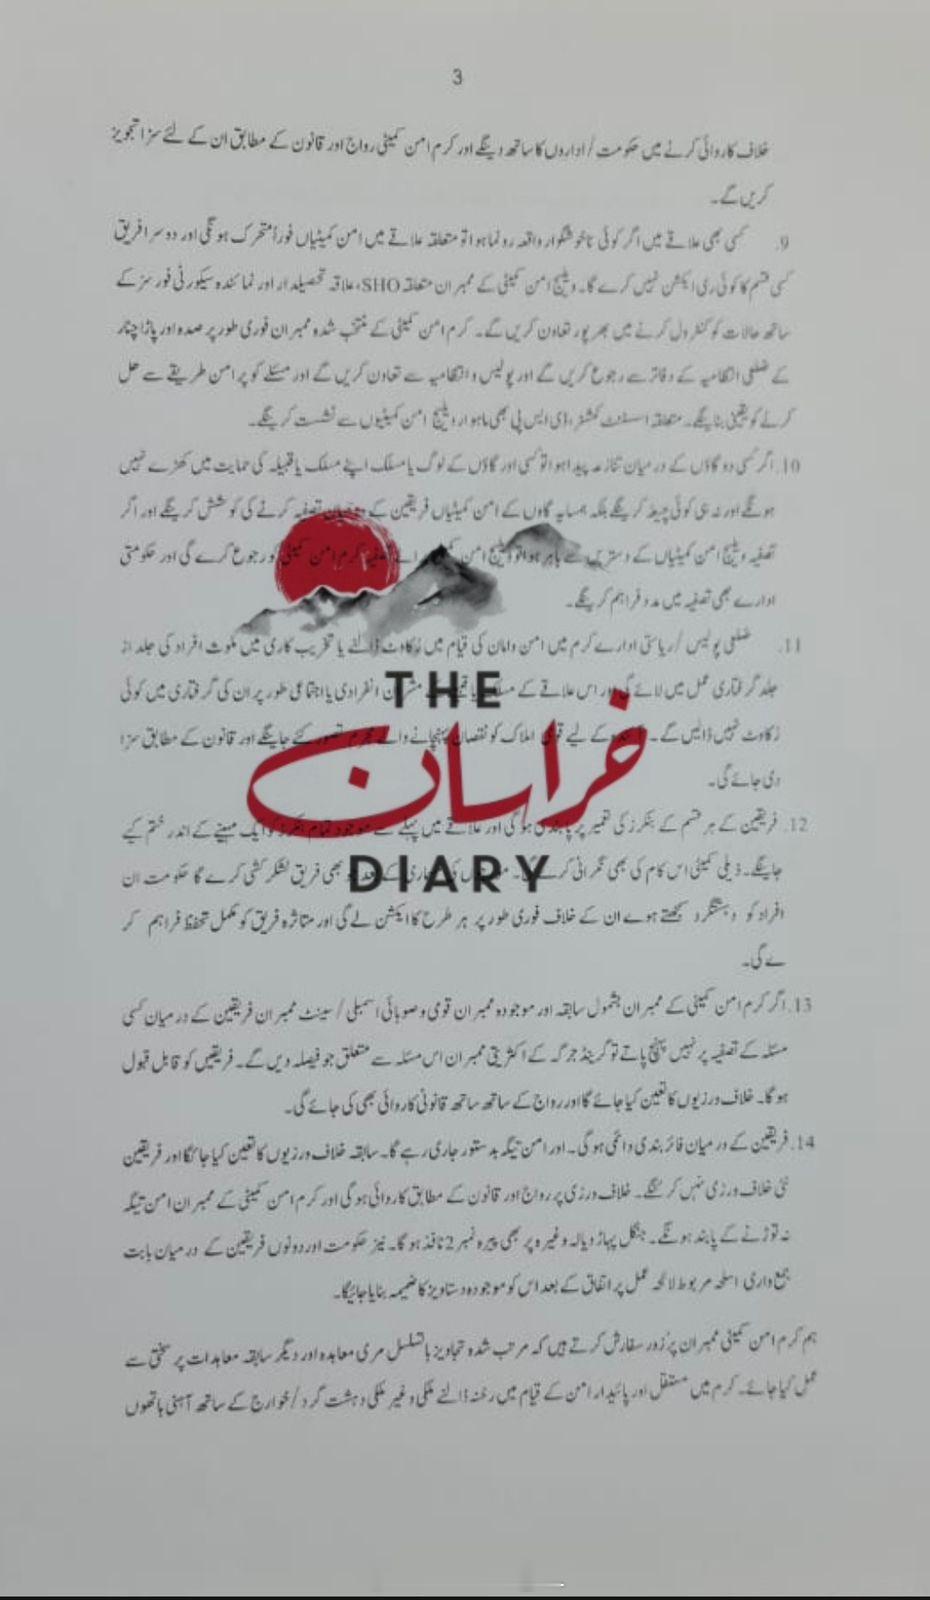 3
خلاف کاروائی کرنے میں حکومت / اداروں کا ساتھ دینگے اور کرم امن کمیٹی رواج اور قانون کے مطابق ان کے لئے سزا تجویز
کریں گے۔
9. کسی بھی علاقے میں اگر کوئی ناخوشگوار واقعہ رونما ہوا تو متعلقہ علاقے میں امن کمیٹیاں فوراً متحرک ہونگی اور دوسرا فریق
کسی قسم کا کوئی ری ایکشن نہیں کرے گا۔ ویلیج امن کمیٹی کے ممبران متعلقہ SHO، علاقہ تحصیلدار اور نمائندہ سیکورٹی فورسز کے
ساتھ حالات کو کنٹرول کرنے میں بھرپور تعاون کریں گے۔ کرم امن کمیٹی کے منتخب شدہ ممبران فوری طور پر صدہ اور پاڑا چنار
کے ضلعی انتظامیہ کے دفاتر سے رجوع کریں گے اور پولیس و انتظامیہ سے تعاون کریں گے اور مسئلے کو پر امن طریقے سے حل
کرنے کو یقینی بنائینگے۔ متعلقہ اسسٹنٹ کمشنر، ڈی ایس پی بھی ماہوار ویلیج امن کمیٹیوں سے نشست کرینگے۔
10. اگر کسی دو گاؤں کے درمیان تنازعہ پیدا ہوا تو کسی اور گاؤں کے لوگ یا مسلک اپنے مسلک یا قبیلہ کی حمایت میں کھڑے نہیں
ہونگے اور نہ ہی کوئی چیلہ کرینگے بلکہ ہمسایہ گاوں کے امن کمیٹیاں فریقین کے درمیان تصفیہ کرنے کی کوشش کرینگے اور اگر
تصفیہ ویلیج امن کمیٹیاں کے دسترس سے باہر ہوا تو ویلیج امن تصفیہ کرم امن کمیٹی کو رجوع کرے گی اور حکومتی
ادارے بھی تصفیہ میں مدد فراہم کرینگے۔
11. ضلعی پولیس / ریاستی ادارے کرم میں امن و امان کی قیام میں رکاوٹ ڈالنے یا تخریب کاری میں ملوث افراد کی جلد از
جلد گرفتاری عمل میں لائے گی اور اس علاقے کے مشران انفرادی یا اجتماعی طور پر ان کی گرفتاری میں کوئی
رکاوٹ نہیں ڈالیں گے۔ کے لیے قومی املاک کو نقصان پہنچانے والے مجرم تصور کئے جاینگے اور قانون کے مطابق سزا
دی جائے گی۔
12. فریقین کے ہر قسم کے بنکرز کی تعمیر پر پابندی ہوگی اور علاقے میں پہلے سے موجود تمام بنکرز کو ایک مہینے کے اندر ختم کیے
جاینگے۔ ذیلی کمیٹی اس کام کی بھی نگرانی کرے گی۔ کے بعد جو بھی فریق لشکر کشی کرے گا حکومت ان
افراد کو دہشتگرد سمجھتے ہوے ان کے خلاف فوری طور پر ہر طرح کا ایکشن لے گی اور متاثرہ فریق کو مکمل تحفظ فراہم کر
ے گی۔
13. اگر کرم امن کمیٹی کے ممبران بشمول سابقہ اور موجودہ ممبران قومی و صوبائی اسمبلی / سینٹ ممبران فریقین کے درمیان کسی
مسئلہ کے تصفیہ پر نہیں پہنچ پاتے تو گرینڈ جرگہ کے اکثریتی ممبران اس مسئلہ سے متعلق جو فیصلہ دیں گے۔ فریقیں کو قابل قبول
ہو گا۔ خلاف ورزیوں کا تعین کیا جائے گا اور رواج کے ساتھ ساتھ قانونی کاروائی بھی کی جائے گی۔
14. فریقین کے درمیان فائر بندی دائمی ہوگی۔ اور امن تیگہ بدستور جاری رہے گا۔ سابقہ خلاف ورزیوں کا تعین کیا جائگا اور فریقین
نئی خلاف ورزی نہیں کرینگے۔ خلاف ورزی پر رواج اور قانون کے مطابق کاروائی ہوگی اور کرم امن کمیٹی کے ممبران امن تیگہ
نہ توڑنے کے پابند ہونگے۔ جنگل پہاڑ دیالہ وغیرہ پر بھی پیرہ نمبر 2 نافذ ہو گا۔ نیز حکومت اور دونوں فریقین کے درمیان بابت
جمع واری اسلحہ مربوط لائحہ عمل پر اتفاق کے بعد اس کو موجودہ دستاویز کا ضمیمہ بنایا جائیگا۔
ہم کرم امن کمیٹی ممبران پرُزور سفارش کرتے ہیں کہ مرتب شدہ تجاویز بالتسلسل مری معاہدہ اور دیگر سابقہ معاہدات پر سختی سے
عمل کیا جائے۔ کرم میں مستقل اور پائیدار امن کے قیام میں رخنہ ڈالنے ملکی و غیر ملکی دہشت گرد / خوارج کے ساتھ آہنی ہاتھوں
THE
خراسان
DIARY